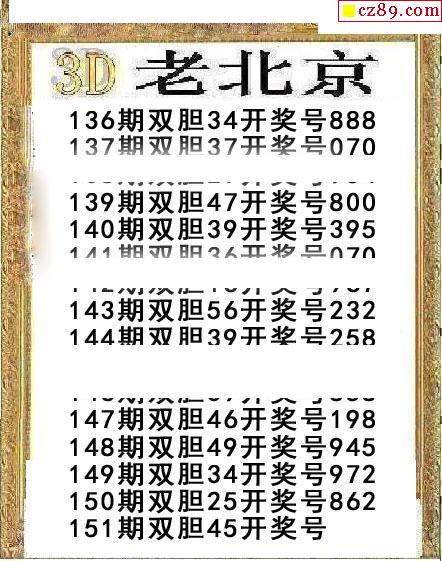 cz89.com
3D 老北京
136期双胆34开奖号888
137期双胆37开奖号070
139期双胆47开奖号800
140期双胆39开奖号395
141期双胆36开奖号070
143期双胆56开奖号232
144期双胆39开奖号258
147期双胆46开奖号198
148期双胆49开奖号945
149期双胆34开奖号972
150期双胆25开奖号862
151期双胆45开奖号